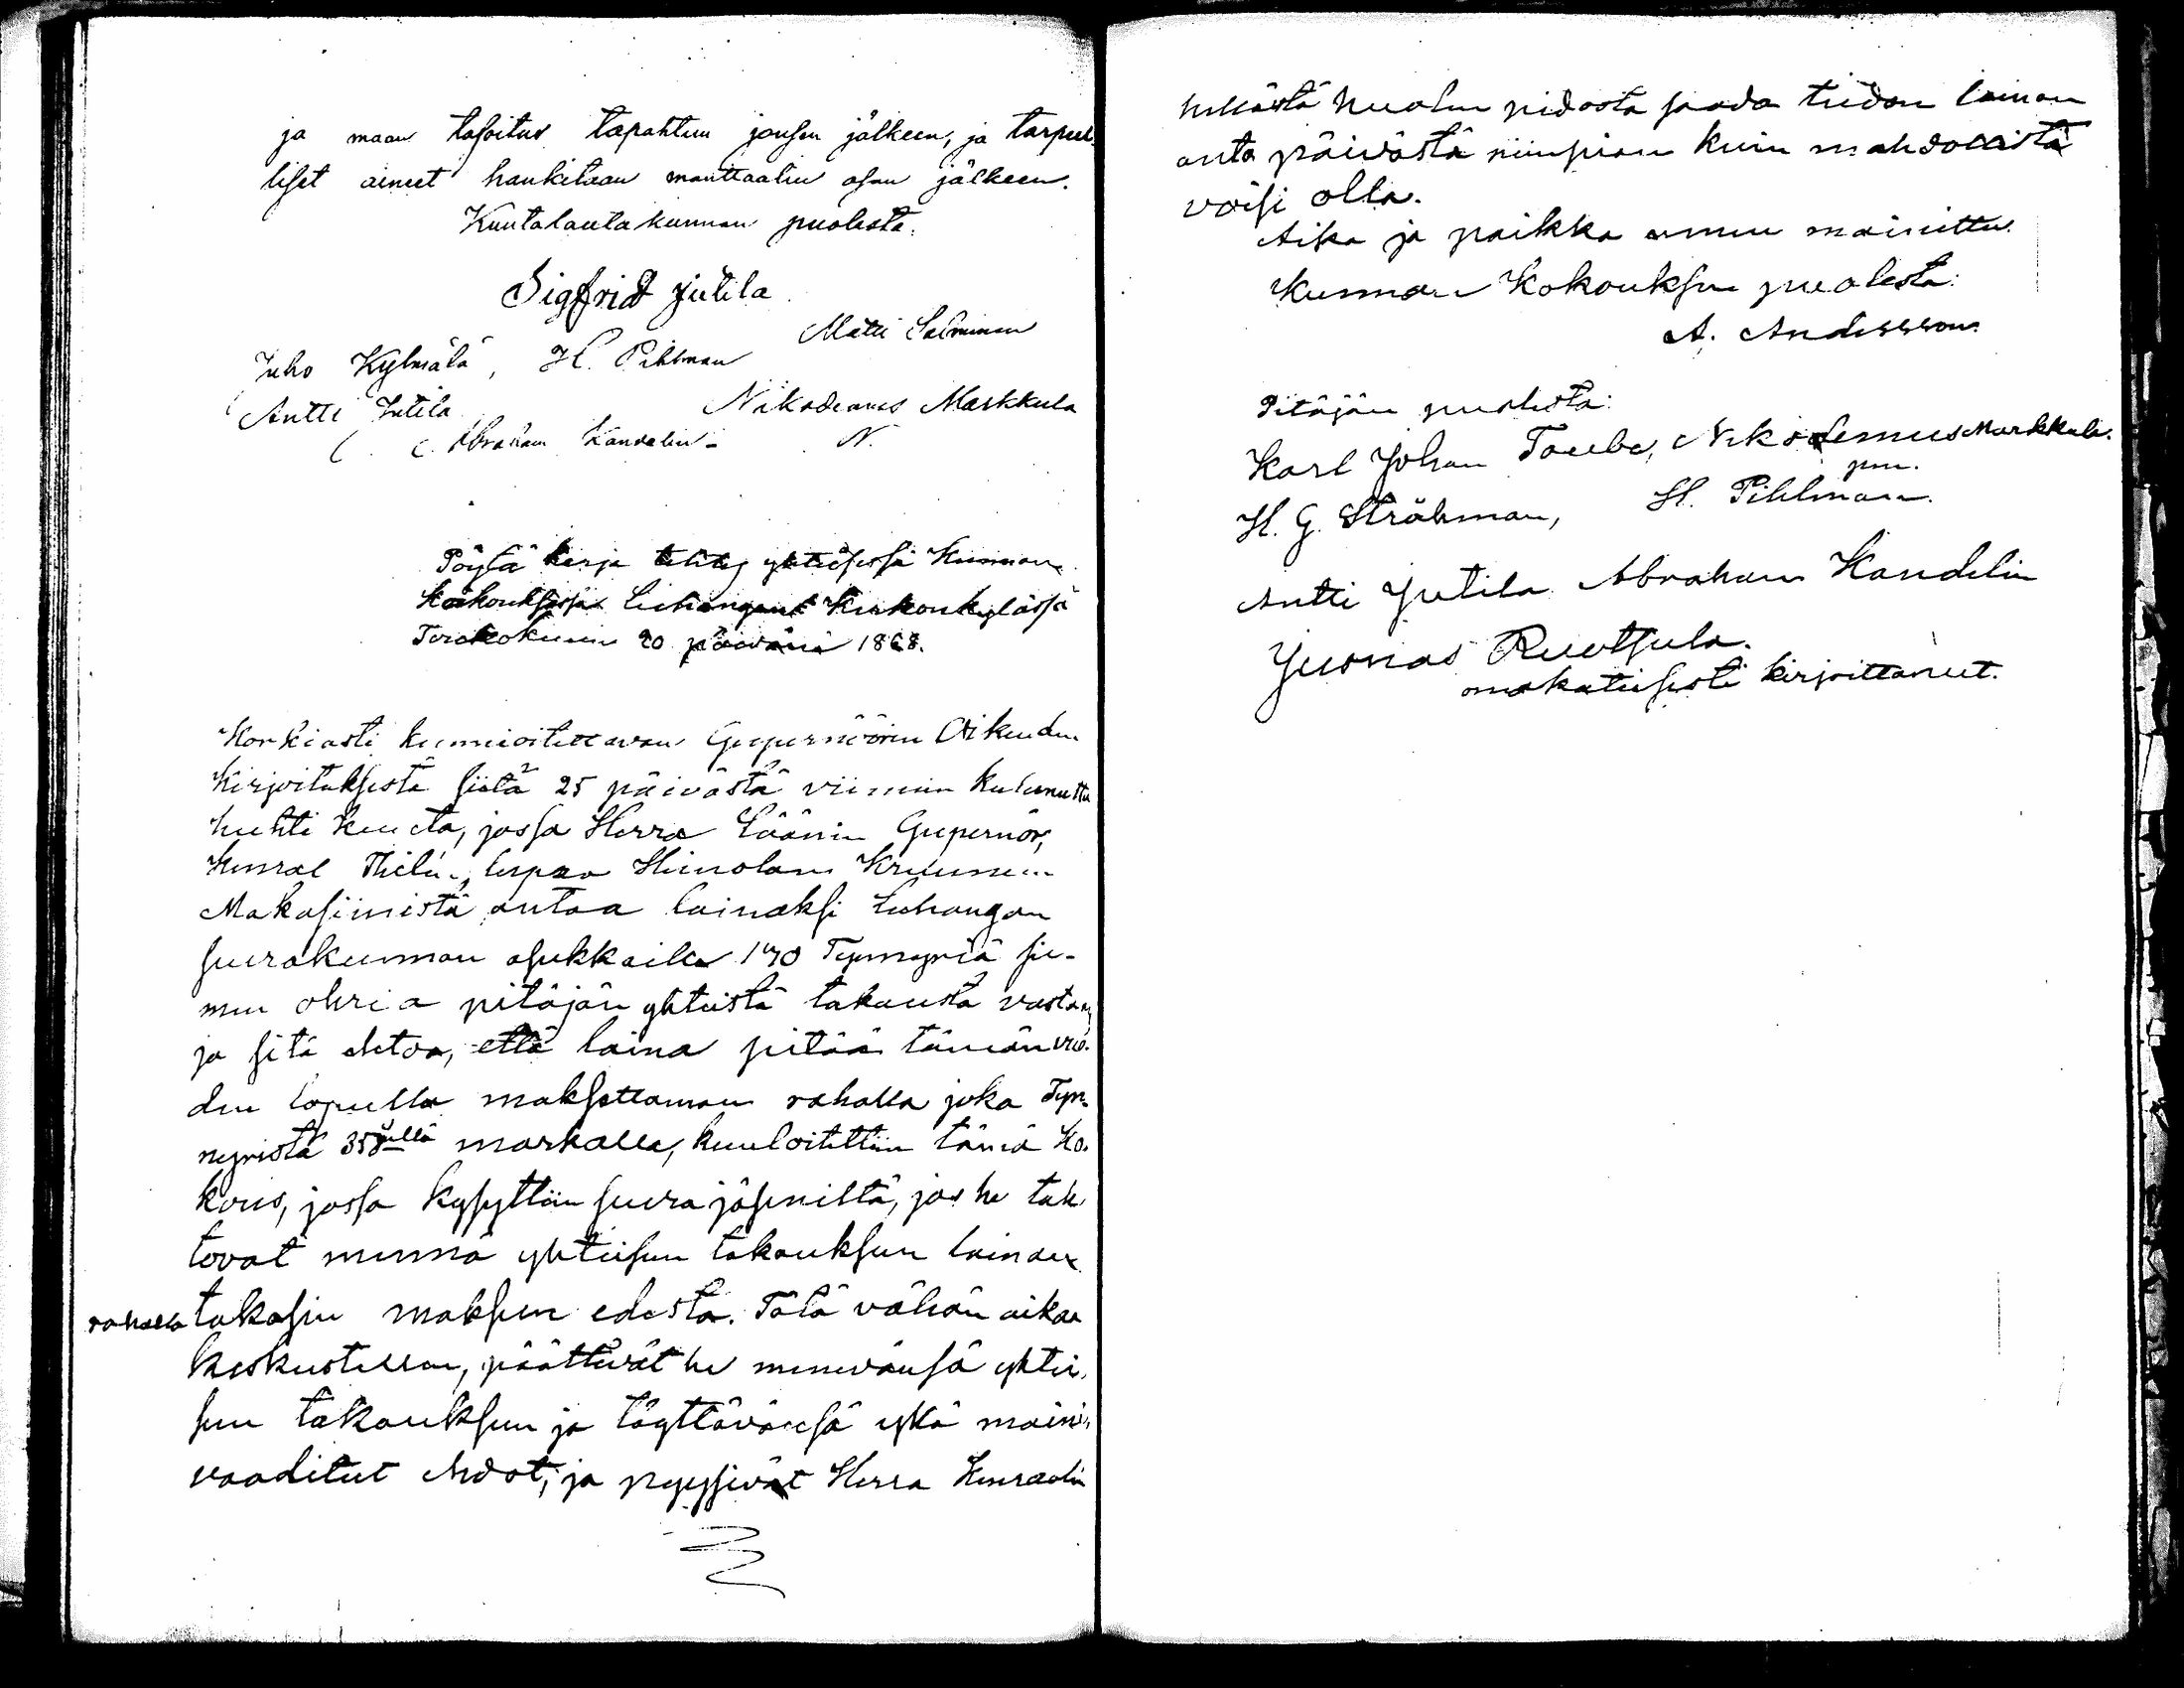 ja maan tasoitus tapahtuu jousen jälkeen, ja tarpeel-
liset aineet hankitaan manttaalin osan jälkeen.
Kuntalautakunnan puolesta.
Sigfrid Jutila
Matti Salminen
Juho Kylmälä, H. Pihlman
Antti Jutila Nikodemus Markkula
Abraham Kandelin N.
Pöytä kirja tehty yhteisessä Kunnan
Kokouksessa Luhangan Kirkonkylässä
Toukokuun 20 päivänä 1868.
Korkiasti kunnioitettavan Gupernöörin Oikeuden
Kirjoituksesta siitä 25 päivästä viimein kulunutta
huhti kuuta, jossa Herra Läänin Gupernör,
Kenral Thilén, lupaa Heinolan Kruunun
Makasiinista antaa lainaksi Luhangan
seurakunnan asukkaille 140 Tynnyriä sie-
men ohria pitäjän yhteistä takausta vastaan
ja sitä ehtoa, että laina pitää tämän vuo-
den lopulla maksettaman rahalla joka Tyn-
nyristä 35llä markalla, kuuloitettiin tämä Ko-
kous, jossa kysyttiin seura jäseniltä, jos he tah-
tovat mennä yhteiseen takaukseen lainan
rahalla takasin maksun edestä. Tätä vähän aikaa
keskusteltua, päättivät he menevänsä yhtei-
seen takaukseen ja täyttävänsä ylhä maini-
vaaditut ehdot, ja pyysivät Herra Kenraalin
hellästä huolen pidosta saada tiedon lainan
anto päivästä niinpian kuin mahdollista
voisi olla.
Aika ja paikka ennen mainittu.
Kunnan Kokouksen puolesta:
A. Andersson.
Pitäjän puolesta:
Karl Johan Taube, Nikodemus Markkula.
H. G. Stråhman, H. Pihlman.
Antti Jutila Abraham Kandelin
Juonas Ruotsula.
omakätisesti kirjoittaneet.